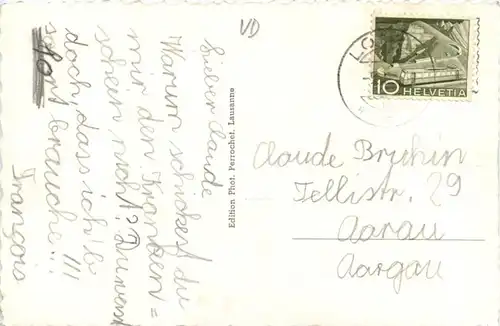 VD
Lieber Claude
Warum schickest du
mir den Kranken=
schein nicht? Du weisst
doch, dass ich's
sofort brauche!!!
François
Edition Phot. Perrochet. Lausanne
10 HELVETIA
Claude Bruhin
Tellistr. 29
Aarau
Aargau